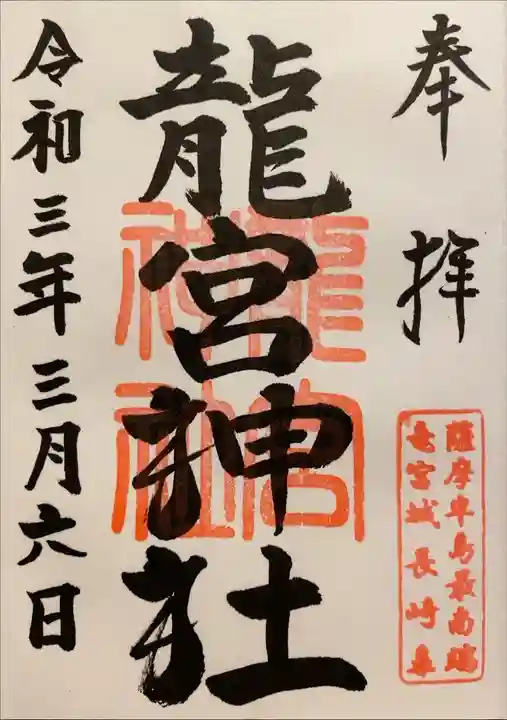 奉拝
薩摩半島最南端
竜宮城 長崎鼻
龍宮神社
龍宮
神社
令和三年三月六日